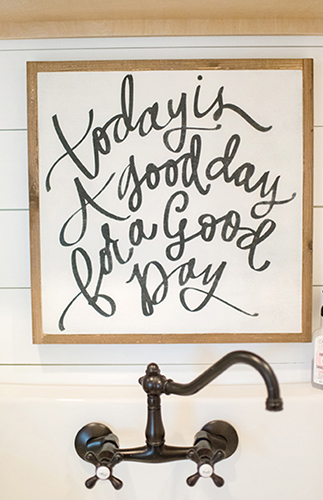 today is
A good day
for a Good
Day